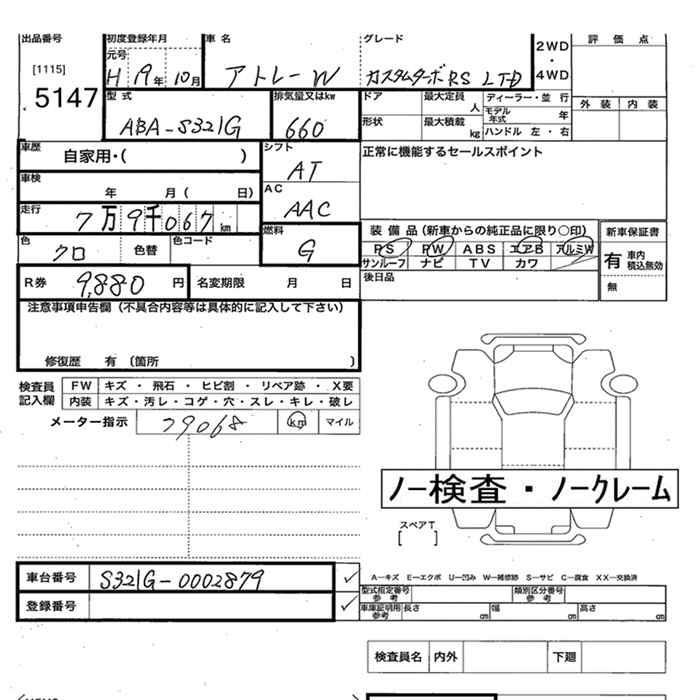 出品番号 初度登録年月 車 名 グレード 2WD ・ 4WD 評 価 点
[1115] 元号 H 19年 10月 アトレーW カスタムターボRS LTD
5147 型 式 排気量又はkw ドア 最大定員 人 ディーラー・並 行 外 装 内 装
ABA-S321G 660 形状 最大積載 kg モデル年式 年
ハンドル 左 ・ 右
車歴 自家用・( ) シフト AT 正常に機能するセールスポイント
車検 年 月( 日) AC AAC
走行 7万9千067km 燃料 G 装 備 品 (新車からの純正品に限り○印) 新車保証書
色 クロ 色替 色コード PS PW ABS エアB アルミW 有 車内積込無効
サンルーフ ナビ TV カワ 無
R券 9,880 円 名変期限 月 日 後日品
注意事項申告欄 (不具合内容等は具体的に記入して下さい)
修復歴 有 (箇所 )
検査員記入欄 FW キズ ・ 飛石 ・ ヒビ割 ・ リペア跡 ・ X要
内装 キズ・汚レ・コゲ・穴・スレ・キレ・破レ
メーター指示 79068 km マイル
ノー検査・ノークレーム
スペアT
[ ]
車台番号 S321G-0002879 ✓ A-キズ E-エクボ U-凹み W-補修跡 S-サビ C-腐食 XX-交換済
型式指定番号 参考 類別区分番号 参考
登録番号 ✓ 車庫証明用 参考 長さ cm 幅 cm 高さ cm
検査員名 内外 下廻